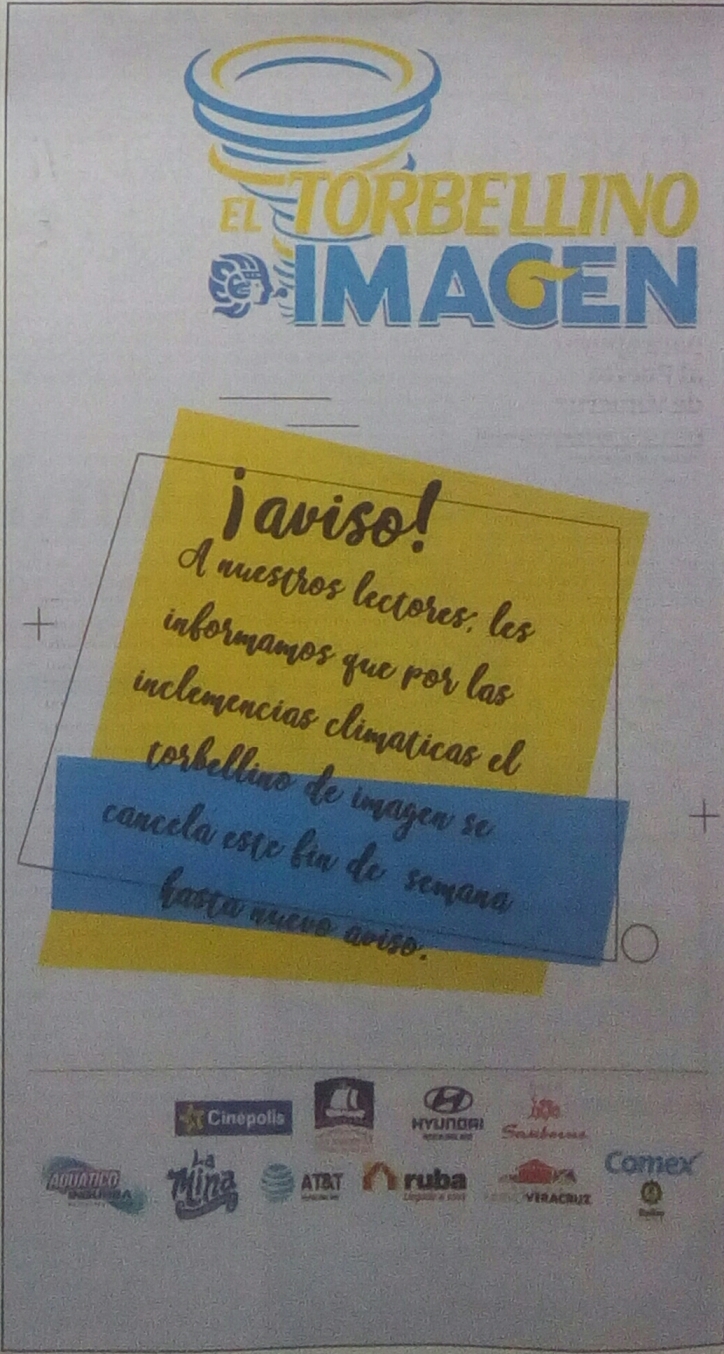 EL TORBELLINO
IMAGEN
¡aviso!
A nuestros lectores: les
informamos que por las
inclemencias climaticas el
torbellino de imagen se
cancela este fin de semana
hasta nuevo aviso.
Cinépolis
HYUNDAI
Sanborns
AQUATICO
INBURSA
La Mina
AT&T
ruba
VERACRUZ
Comex